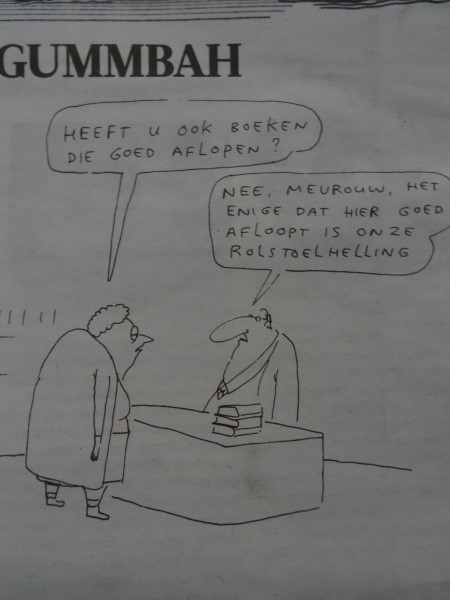 GUMMBAH
HEEFT U OOK BOEKEN
DIE GOED AFLOPEN?
NEE, MEUROUW, HET
ENIGE DAT HIER GOED
AFLOOPT IS ONZE
ROLSTOELHELLING